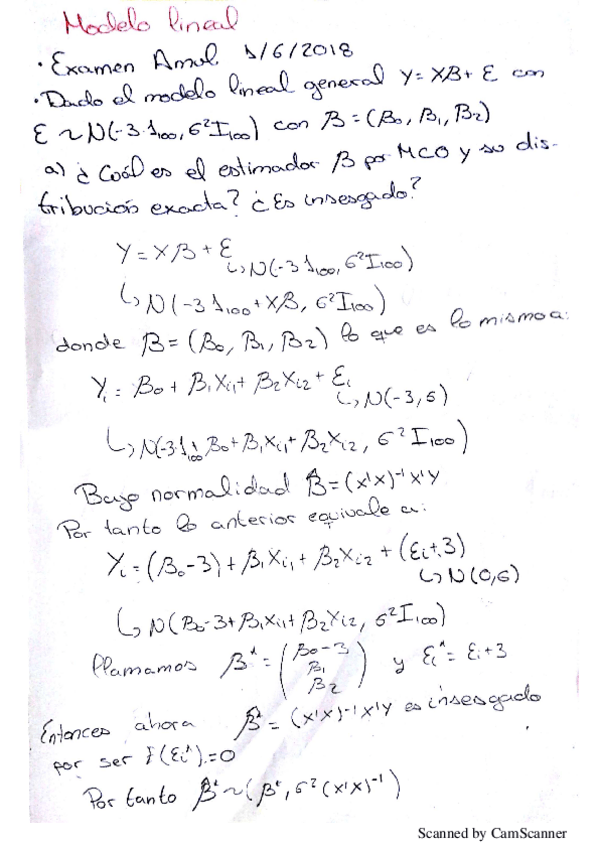 Modelo lineal
· Examen Amul 1/6/2018
· Dado el modelo lineal general Y = XB + ε con
ε ~ N(-3·1₁₀₀, σ²I₁₀₀) con B = (B₀, B₁, B₂)
a) ¿Cuál es el estimador B por MCO y su dis-
tribución exacta? ¿Es insesgado?
Y = XB + ε
↳ N(-3 1₁₀₀, σ²I₁₀₀)
↳ N(-3 1₁₀₀ + XB, σ²I₁₀₀)
donde B = (B₀, B₁, B₂) lo que es lo mismo a:
Yᵢ = B₀ + B₁Xᵢ₁ + B₂Xᵢ₂ + εᵢ
↳ N(-3, σ)
↳ N(-3·1₁₀₀ + B₀ + B₁Xᵢ₁ + B₂Xᵢ₂, σ²I₁₀₀)
Bajo normalidad B̂ = (X'X)⁻¹X'Y
Por tanto lo anterior equivale a:
Yᵢ = (B₀-3) + B₁Xᵢ₁ + B₂Xᵢ₂ + (εᵢ+3)
↳ N(0,σ)
↳ N(B₀-3 + B₁Xᵢ₁ + B₂Xᵢ₂, σ²I₁₀₀)
llamamos B* = (B₀-3 B₁ B₂) y εᵢ* = εᵢ+3
Entonces ahora B̂* = (X'X)⁻¹X'Y es insesgado
por ser E(εᵢ*) = 0
Por tanto B̂* ~ (B*, σ²(X'X)⁻¹)
Scanned by CamScanner